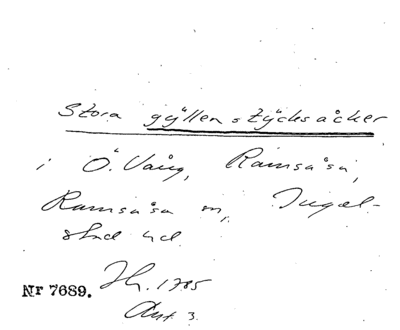 Stora gÿllen stÿcksåcker
i Ö. Vång, Ramsåsa,
Ramsåsa sn, Ingel-
stad hd.
Nr 7689. Sk. 1785
Akt 3.